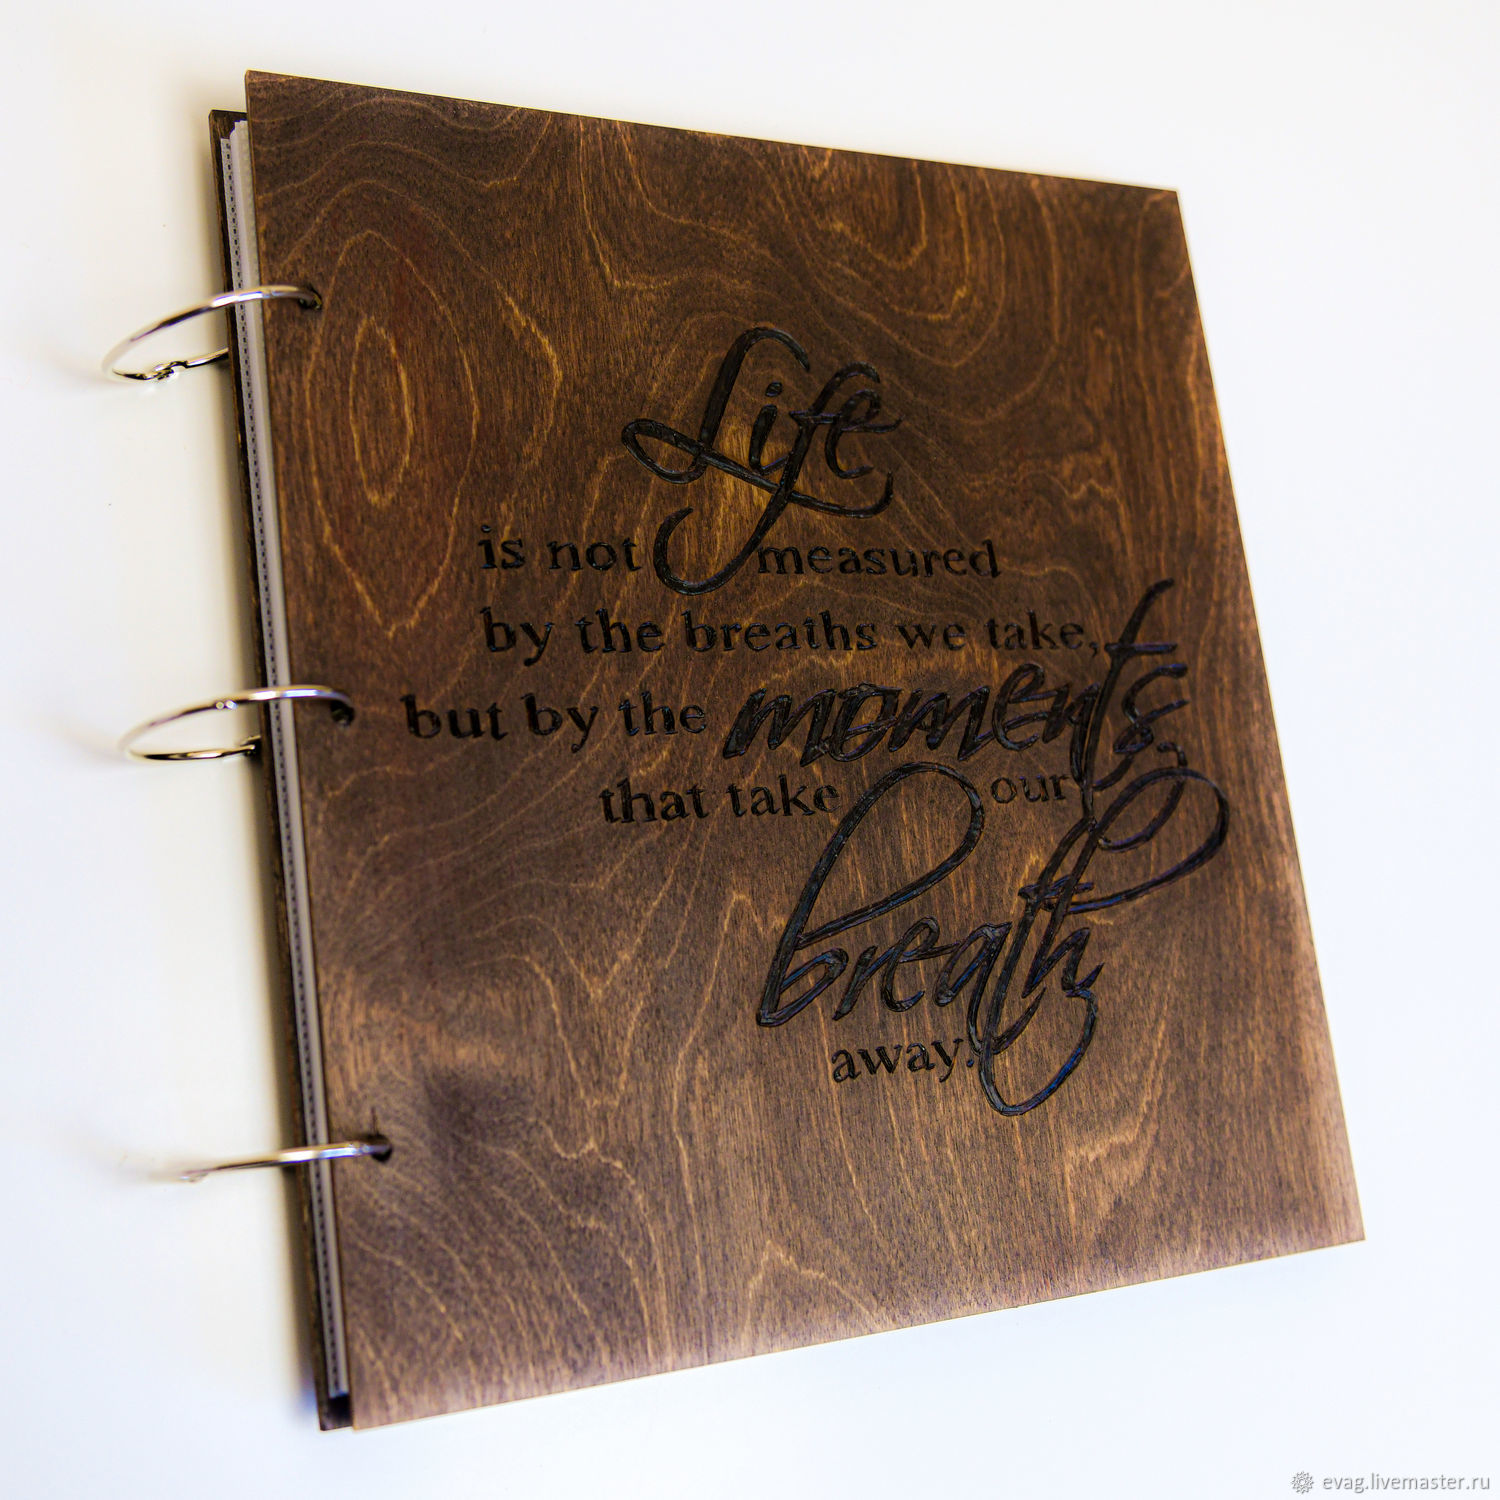 Life
is not measured
by the breaths we take,
but by the moments,
that take our
breath
away.
evag.livemaster.ru